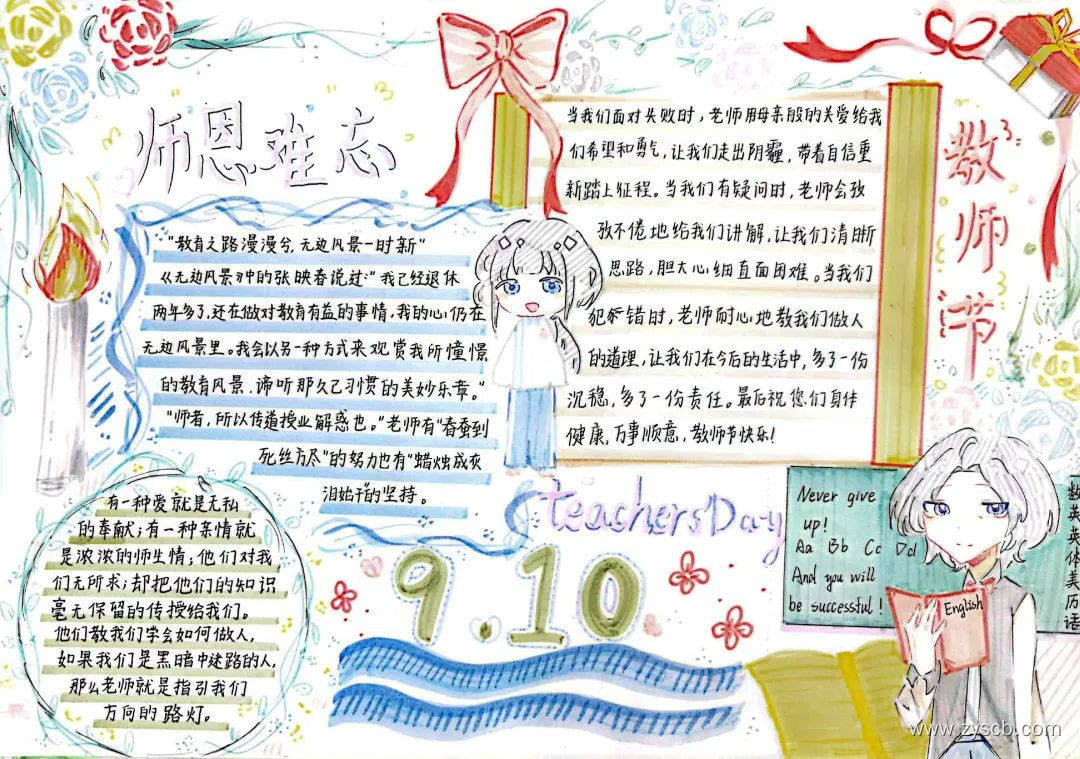 师恩难忘
"教育之路漫漫兮,无边风景一时新"
《无边风景》中的张映春说过:"我已经退休
两年多了,还在做对教育有益的事情,我的心仍在
无边风景里。我会以另一种方式来观赏我所憧憬
的教育风景,谛听那久已习惯的美妙乐章。"
"师者,所以传道授业解惑也。"老师有"春蚕到
死丝方尽"的努力也有"蜡烛成灰
泪始干"的坚持。
当我们面对失败时,老师用母亲般的关爱给我
们希望和勇气,让我们走出阴霾,带着自信重
新踏上征程。当我们有疑问时,老师会孜
孜不倦地给我们讲解,让我们清晰
思路,胆大心细直面困难。当我们
犯错时,老师耐心地教我们做人
的道理,让我们在今后的生活中,多了一份
沉稳,多了一份责任。最后祝您们身体
健康,万事顺意,教师节快乐!
教师节
有一种爱就是无私
的奉献;有一种亲情就
是浓浓的师生情;他们对我
们无所求;却把他们的知识
毫无保留的传授给我们。
他们教我们学会如何做人,
如果我们是黑暗中迷路的人,
那么老师就是指引我们
方向的路灯。
teachers'Day
9.10
Never give
up!
Aa Bb Cc Dd
And you will
be successful!
数英英体美历语
English
www.zyscb.com